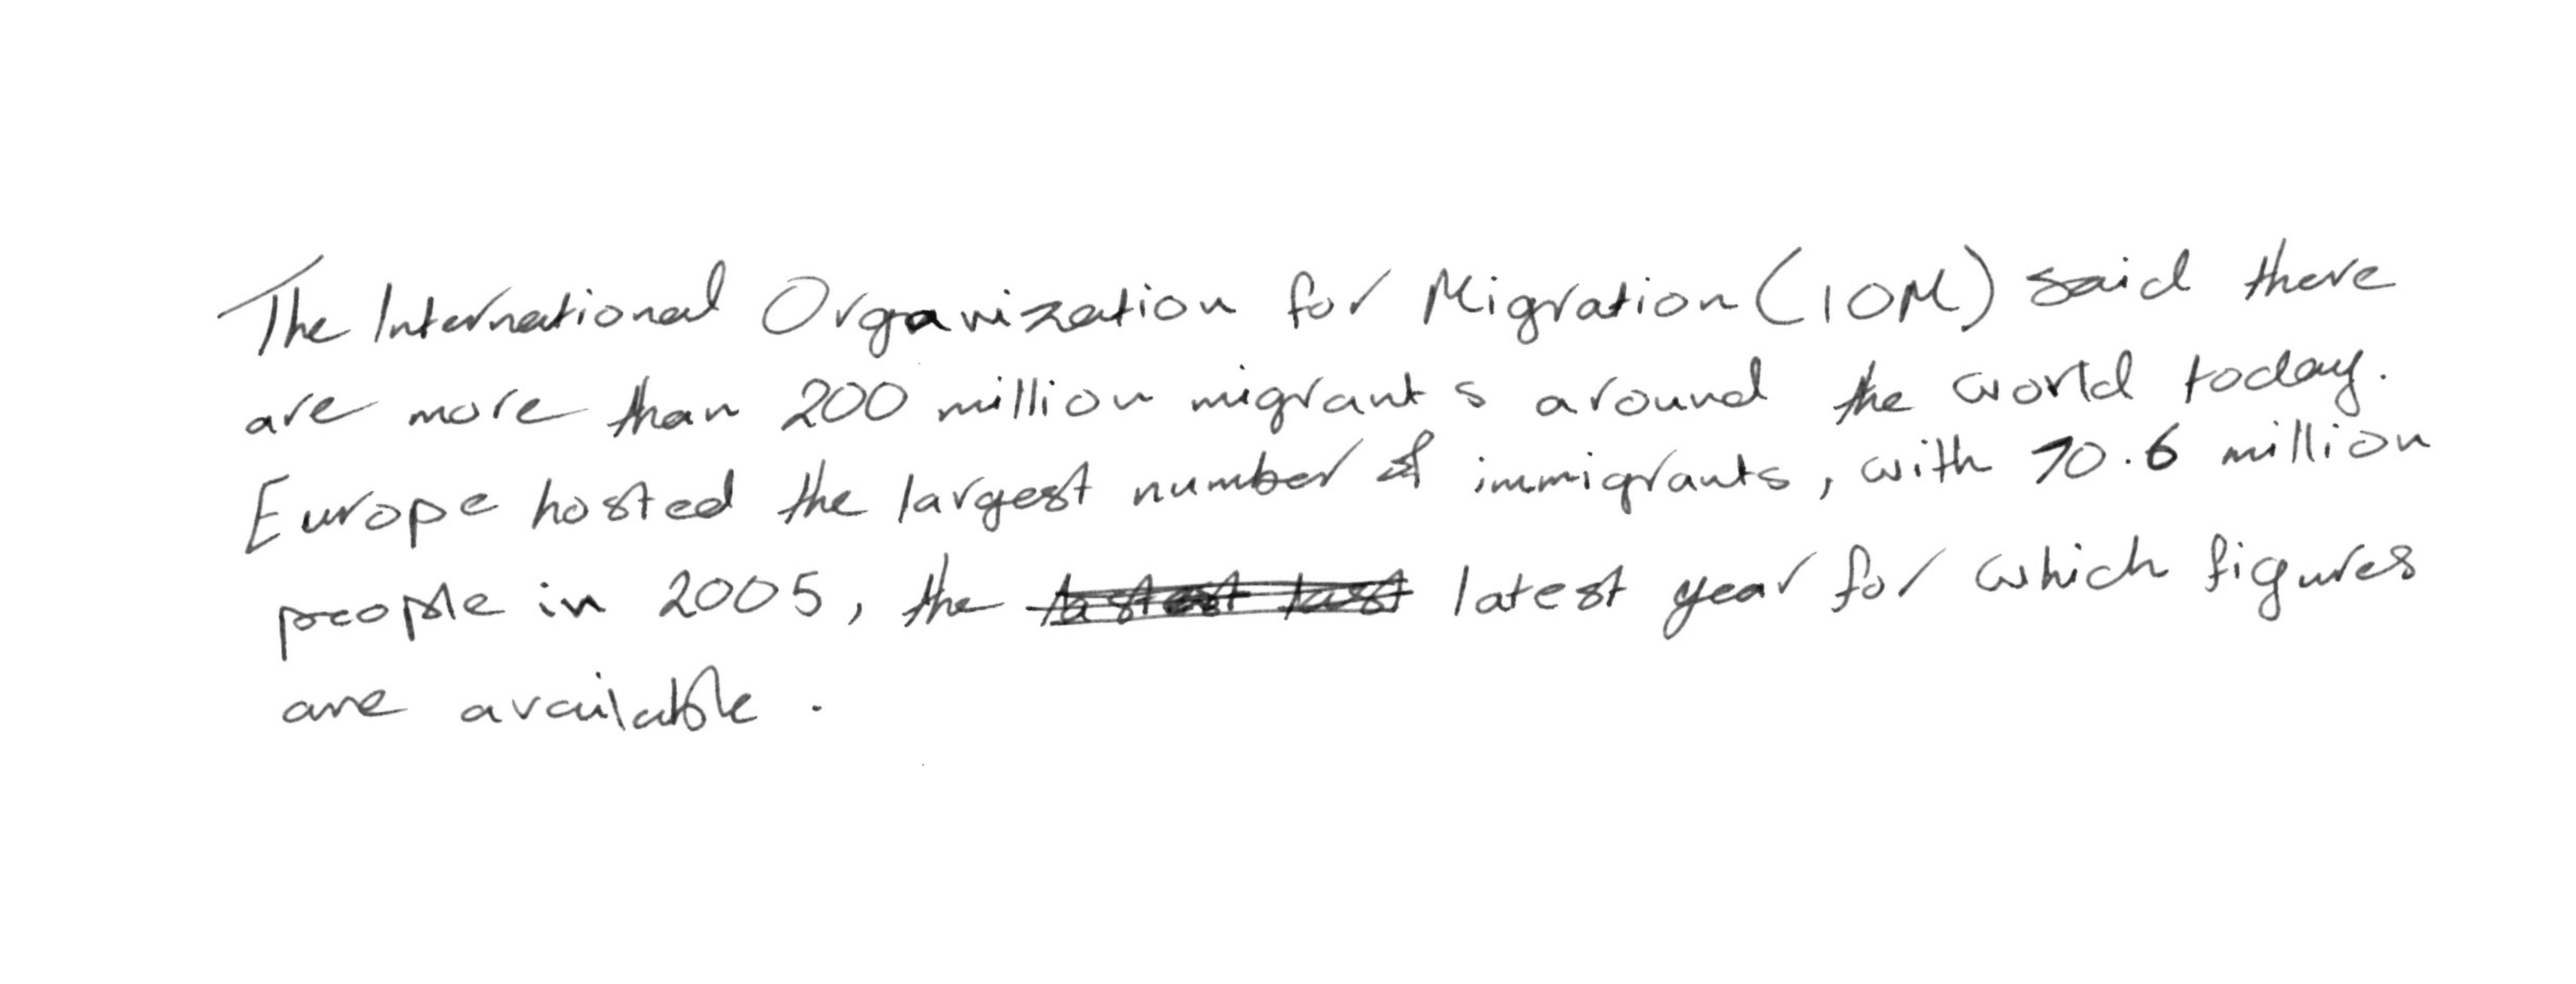 The International Organization for Migration (IOM) said there
are more than 200 million migrants around the world today.
Europe hosted the largest number of immigrants, with 70.6 million
people in 2005, the latest year for which figures
are available.